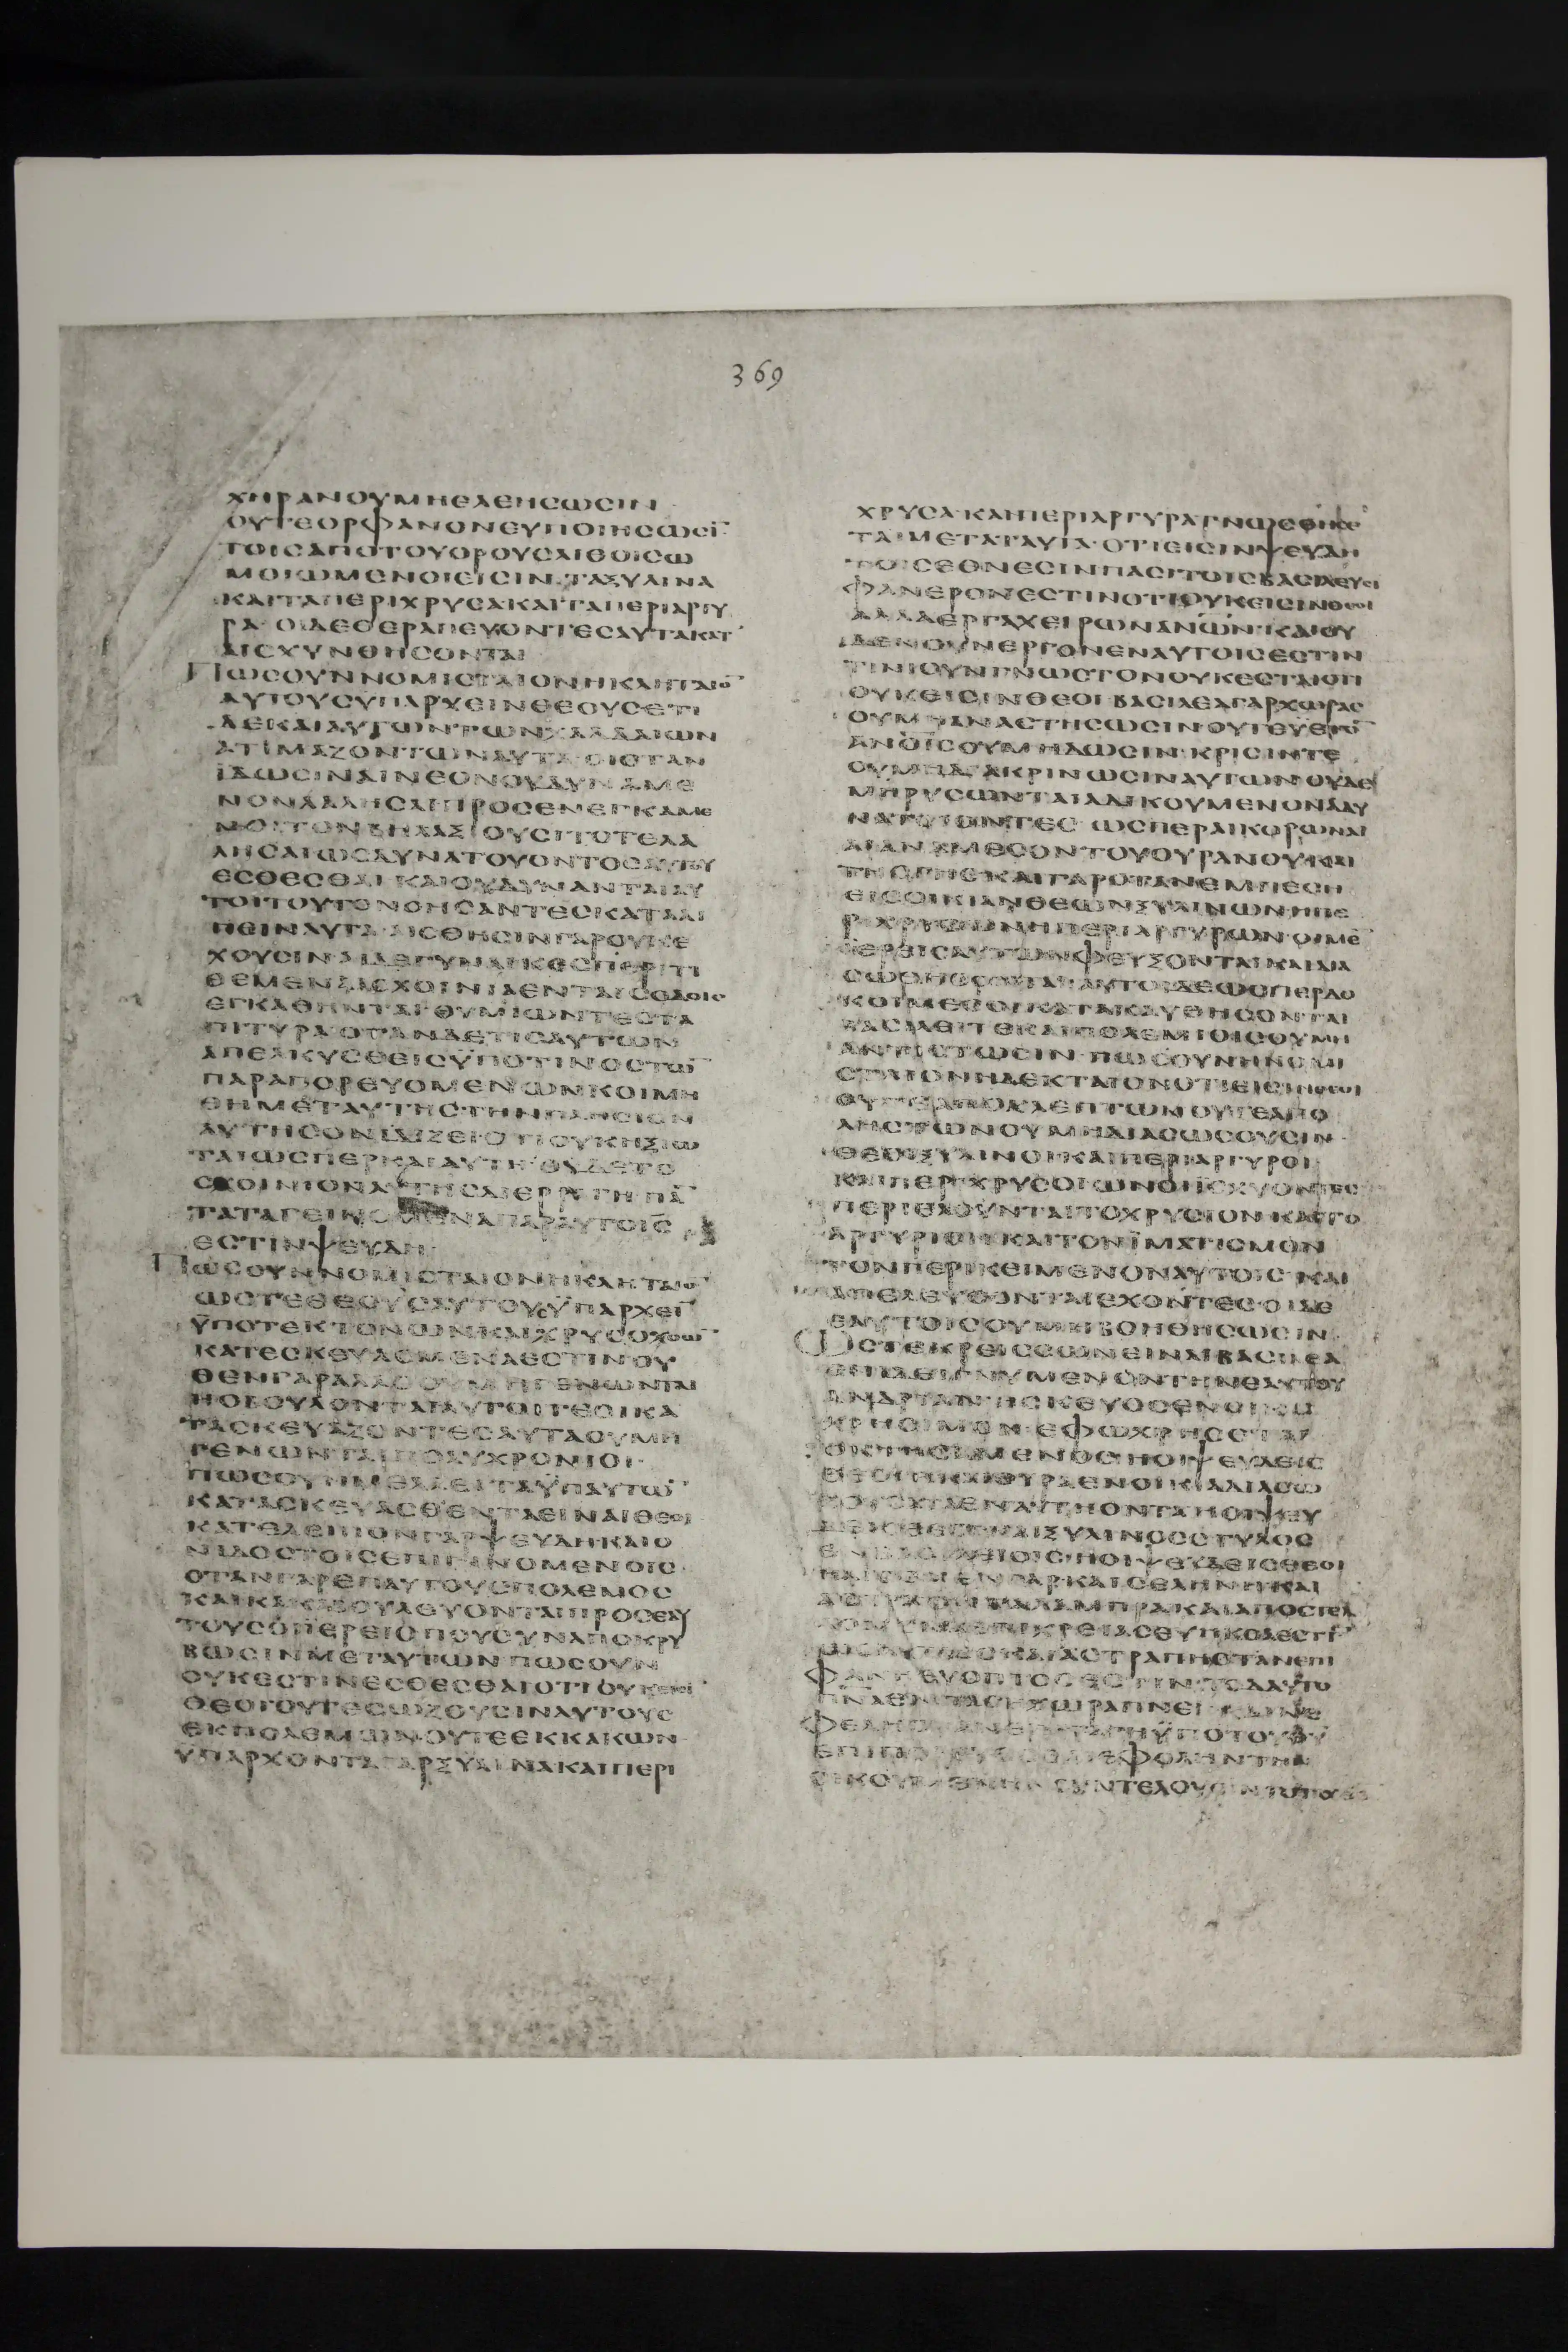 369
ΧΗΡΑΝΟΥΜΗΕΛΕΗϹΩϹΙΝ
ΟΥΤΕΟΡΦΑΝΟΝΕΥΠΟΙΗϹΩϹΙ̅
ΤΟΙϹΑΠΟΤΟΥΟΡΟΥϹΛΙΘΟΙϹΩ
ΜΟΙΩΜΕΝΟΙΕΙϹΙΝ·ΤΑΞΥΛΙΝΑ
ΚΑΙΤΑΠΕΡΙΧΡΥϹΑΚΑΙΤΑΠΕΡΙΑΡΓΥ
ΡΑ·ΟΙΔΕΘΕΡΑΠΕΥΟΝΤΕϹΑΥΤΑΚΑΤ
ΑΙϹΧΥΝΘΗϹΟΝΤΑΙ
ΠΩϹΟΥΝΝΟΜΙϹΤΑΙΟΝΗΚΛΗΤΑΙΟ̅
ΑΥΤΟΥϹΫΠΑΡΧΕΙΝΘΕΟΥϹΕΤΙ
ΔΕΚΑΙΑΥΤΩΝΤΩΝΧΑΛΔΑΙΩΝ
ΑΤΙΜΑΖΟΝΤΩΝΑΥΤΑ·ΟΙΟΤΑΝ
ΪΔΩϹΙΝΑΙΝΕΟΝΟΥΔΥΝΑΜΕ
ΝΟΝΛΑΛΗϹΑΙΠΡΟϹΕΝΕΓΚΑΜΕ
ΝΟΙΤΟΝΒΗΛΑΞΙΟΥϹΙΤΟΤΕΛΑ
ΛΗϹΑΙΩϹΔΥΝΑΤΟΥΟΝΤΟϹΑΥΤΟΥ
ΕϹΘΕϹΘΑΙ·ΚΑΙΟΥΔΥΝΑΝΤΑΙΑΥ
ΤΟΙΤΟΥΤΟΝΟΗϹΑΝΤΕϹΚΑΤΑΛΙ
ΠΕΙΝΑΥΤΑ·ΑΙϹΘΗϹΙΝΓΑΡΟΥΚΕ
ΧΟΥϹΙΝ·ΑΙΔΕΓΥΝΑΙΚΕϹΠΕΡΙΤΙ
ΘΕΜΕΝΑΙϹΧΟΙΝΙΑΕΝΤΑΙϹΟΔΟΙϹ
ΕΓΚΑΘΗΝΤΑΙΘΥΜΙΩΝΤΕϹΤΑ
ΠΙΤΥΡΑ·ΟΤΑΝΔΕΤΙϹΑΥΤΩΝ
ΑΠΕΛΚΥϹΘΕΙϹΫΠΟΤΙΝΟϹΤΩ̅
ΠΑΡΑΠΟΡΕΥΟΜΕΝΩΝΚΟΙΜΗ
ΘΗΜΕΤΑΥΤΗϹΤΗΝΠΛΗϹΙΟΝ
ΑΥΤΗϹΟΝΙΔΙΖΕΙΟΤΙΟΥΚΗΞΙΩ
ΤΑΙΩϹΠΕΡΚΑΙΑΥΤΗ·ΟΥΔΕΤΟ
ϹΧΟΙΝΙΟΝΑΥΤΗϹΔΙΕΡΡΑΓΗΠΑ̅
ΤΑΤΑΓΕΙΝΟΜΕΝΑΠΑΡΑΥΤΟΙϹ
ΕϹΤΙΝΨΕΥΔΗ
ΠΩϹΟΥΝΝΟΜΙϹΤΑΙΟΝΗΚΛΗΤΑΙΟ̅
ΩϹΤΕΘΕΟΥϹΑΥΤΟΥϹΫΠΑΡΧΕΙ̅
ΫΠΟΤΕΚΤΟΝΩΝΚΑΙΧΡΥϹΟΧΟΩ̅
ΚΑΤΕϹΚΕΥΑϹΜΕΝΑΕϹΤΙΝ·ΟΥ
ΘΕΝΓΑΡΑΛΛΟΟΥΜΗΓΕΝΩΝΤΑΙ
ΗΟΒΟΥΛΟΝΤΑΙΑΥΤΟΙ·ΤΕΟΙΚΑ
ΤΑϹΚΕΥΑΖΟΝΤΕϹΑΥΤΑΟΥΜΗ
ΓΕΝΩΝΤΑΙΠΟΛΥΧΡΟΝΙΟΙ·
ΠΩϹΟΥΝΜΕΛΛΕΙΤΑΫΠΑΥΤΩ̅
ΚΑΤΑϹΚΕΥΑϹΘΕΝΤΑΕΙΝΑΙΘΕΟΙ
ΚΑΤΕΛΕΙΠΟΝΓΑΡΨΕΥΔΗΚΑΙΟ
ΝΙΔΟϹΤΟΙϹΕΠΙΓΙΝΟΜΕΝΟΙϹ·
ΟΤΑΝΓΑΡΕΠΑΥΤΟΥϹΠΟΛΕΜΟϹ
ΚΑΙΚΑΚΑΒΟΥΛΕΥΟΝΤΑΙΠΡΟϹΕΑΥ
ΤΟΥϹΟΪΕΡΕΙϹΠΟΥϹΥΝΑΠΟΚΡΥ
ΒΩϹΙΝΜΕΤΑΥΤΩΝ·ΠΩϹΟΥΝ
ΟΥΚΕϹΤΙΝΕϹΘΕϹΘΑΙΟΤΙΟΥΚΕΙϹΙ
ΘΕΟΙΟΥΤΕϹΩΖΟΥϹΙΝΑΥΤΟΥϹ
ΕΚΠΟΛΕΜΩΝΟΥΤΕΕΚΚΑΚΩΝ·
ΫΠΑΡΧΟΝΤΑΓΑΡΞΥΛΙΝΑΚΑΙΠΕΡΙ
ΧΡΥϹΑ·ΚΑΙΠΕΡΙΑΡΓΥΡΑΓΝΩϹΘΗϹΕ
ΤΑΙΜΕΤΑΤΑΥΤΑ·ΟΤΙΕΙϹΙΝΨΕΥΔΗ
ΤΟΙϹΕΘΝΕϹΙΝΠΑϹΙΤΟΙϹΒΑϹΙΛΕΥϹΙ
ΦΑΝΕΡΟΝΕϹΤΙΝΟΤΙΟΥΚΕΙϹΙΝΘΕΟΙ
ΑΛΛΑΕΡΓΑΧΕΙΡΩΝΑΝΩ̅Ν·ΚΑΙΟΥ
ΔΕΝΟΥΝΕΡΓΟΝΕΝΑΥΤΟΙϹΕϹΤΙΝ
ΤΙΝΙΟΥΝΓΝΩϹΤΟΝΟΥΚΕϹΤΑΙΟΤΙ
ΟΥΚΕΙϹΙΝΘΕΟΙ·ΒΑϹΙΛΕΑΓΑΡΧΩΡΑϹ
ΟΥΜΗΑΝΑϹΤΗϹΩϹΙΝ·ΟΥΤΕΫΕΤΟ̅
ΑΝΟΙϹΟΥΜΗΔΩϹΙΝ·ΚΡΙϹΙΝΤΕ
ΟΥΜΗΔΙΑΚΡΙΝΩϹΙΝΑΥΤΩΝ·ΟΥΔΕ
ΜΗΡΥϹΩΝΤΑΙΑΔΙΚΟΥΜΕΝΟΝΑΔΥ
ΝΑΤΟΙΟΝΤΕϹ·ΩϹΠΕΡΑΙΚΟΡΩΝΑΙ
ΑΙΑΝΑΜΕϹΟΝΤΟΥΟΥΡΑΝΟΥΚΑΙ
ΤΗϹΓΗϹ·ΚΑΙΓΑΡΟΤΑΝΕΜΠΕϹΗ
ΕΙϹΟΙΚΙΑΝΘΕΩΝΞΥΛΙΝΩΝΗΠΕ
ΡΙΧΡΥϹΩΝΗΠΕΡΙΑΡΓΥΡΩΝ·ΟΙΜΕ̅
ΪΕΡΕΙϹΑΥΤΩΝΦΕΥΞΟΝΤΑΙΚΑΙΔΙΑ
ϹΩΘΗϹΟΝΤΑΙ·ΑΥΤΟΙΔΕΩϹΠΕΡΔΟ
ΚΟΙΜΕϹΟΙΚΑΤΑΚΑΥΘΗϹΟΝΤΑΙ
ΒΑϹΙΛΕΙΤΕΚΑΙΠΟΛΕΜΙΟΙϹΟΥΜΗ
ΑΝΤΙϹΤΩϹΙΝ·ΠΩϹΟΥΝΗΝΟΜΙ
ϹΤΑΙΟΝΗΔΕΚΤΑΙΟΝΟΤΙΕΙϹΙΝΘΕΟΙ
ΟΥΤΕΑΠΟΚΛΕΠΤΩΝΟΥΤΕΑΠΟ
ΛΗϹΤΩΝΟΥΜΗΔΙΑϹΩϹΟΥϹΙΝ·
ΘΕΟΙΞΥΛΙΝΟΙ·ΚΑΙΠΕΡΙΑΡΓΥΡΟΙ
ΚΑΙΠΕΡΙΧΡΥϹΟΙΩΝΟΙΙϹΧΥΟΝΤΕϹ
ΠΕΡΙΕΛΟΥΝΤΑΙΤΟΧΡΥϹΙΟΝ·ΚΑΙΤΟ
ΑΡΓΥΡΙΟΝΚΑΙΤΟΝΪΜΑΤΙϹΜΟΝ
ΤΟΝΠΕΡΙΚΕΙΜΕΝΟΝΑΥΤΟΙϹ·ΚΑΙ
ΑΠΕΛΕΥϹΟΝΤΑΙΕΧΟΝΤΕϹ·ΟΙΔΕ
ΕΑΥΤΟΙϹΟΥΜΗΒΟΗΘΗϹΩϹΙΝ·
ΩϹΤΕΚΡΕΙϹϹΩΝΕΙΝΑΙΒΑϹΙΛΕΑ
ΕΠΙΔΕΙΚΝΥΜΕΝΟΝΤΗΝΕΑΥΤΟΥ
ΑΝΔΡΙΑΝ·ΗϹΚΕΥΟϹΕΝΟΙΚΙΑ
ΧΡΗϹΙΜΟΝ·ΕΦΩΧΡΗϹΕΤΑΙ
ΟΚΤΗϹΑΜΕΝΟϹ·ΗΟΙΨΕΥΔΕΙϹ
ΘΕΟΙ·ΗΚΑΙΘΥΡΑΕΝΟΙΚΙΑΔΙΑϹΩ
ΖΟΥϹΑΤΑΕΝΑΥΤΗΟΝΤΑΗΟΙΨΕΥ
ΔΕΙϹΘΕΟΙΚΑΙΞΥΛΙΝΟϹϹΤΥΛΟϹ
ΕΝΒΑϹΙΛΕΙΟΙϹ·ΗΟΙΨΕΥΔΕΙϹΘΕΟΙ
ΗΛΙΟϹΜΕΝΓΑΡΚΑΙϹΕΛΗΝΗΚΑΙ
ΑϹΤΡΑΟΝΤΑΛΑΜΠΡΑΚΑΙΑΠΟϹΤΕΛ
ΩϹΑΥΤΩϹΚΑΙΑϹΤΡΑΠΗΟΤΑΝΕΠΙ
ΦΑΝΗΕΥΟΠΤΟϹΕϹΤΙΝ·ΤΟΔΑΥΤΟ
ΠΝ̅ΑΕΝΠΑϹΗΧΩΡΑΠΝΕΙ·ΚΑΙΝΕ
ΦΕΛΗΟΤΑΝΕΠΙΤΑΓΗΫΠΟΤΟΥΘΥ̅
ΕΠΙΠΟΡΕΥΕϹΘΑΙΕΦΟΛΗΝΤΗΝ
ΟΙΚΟΥΜΕΝΗΝϹΥΝΤΕΛΟΥϹΙΝ